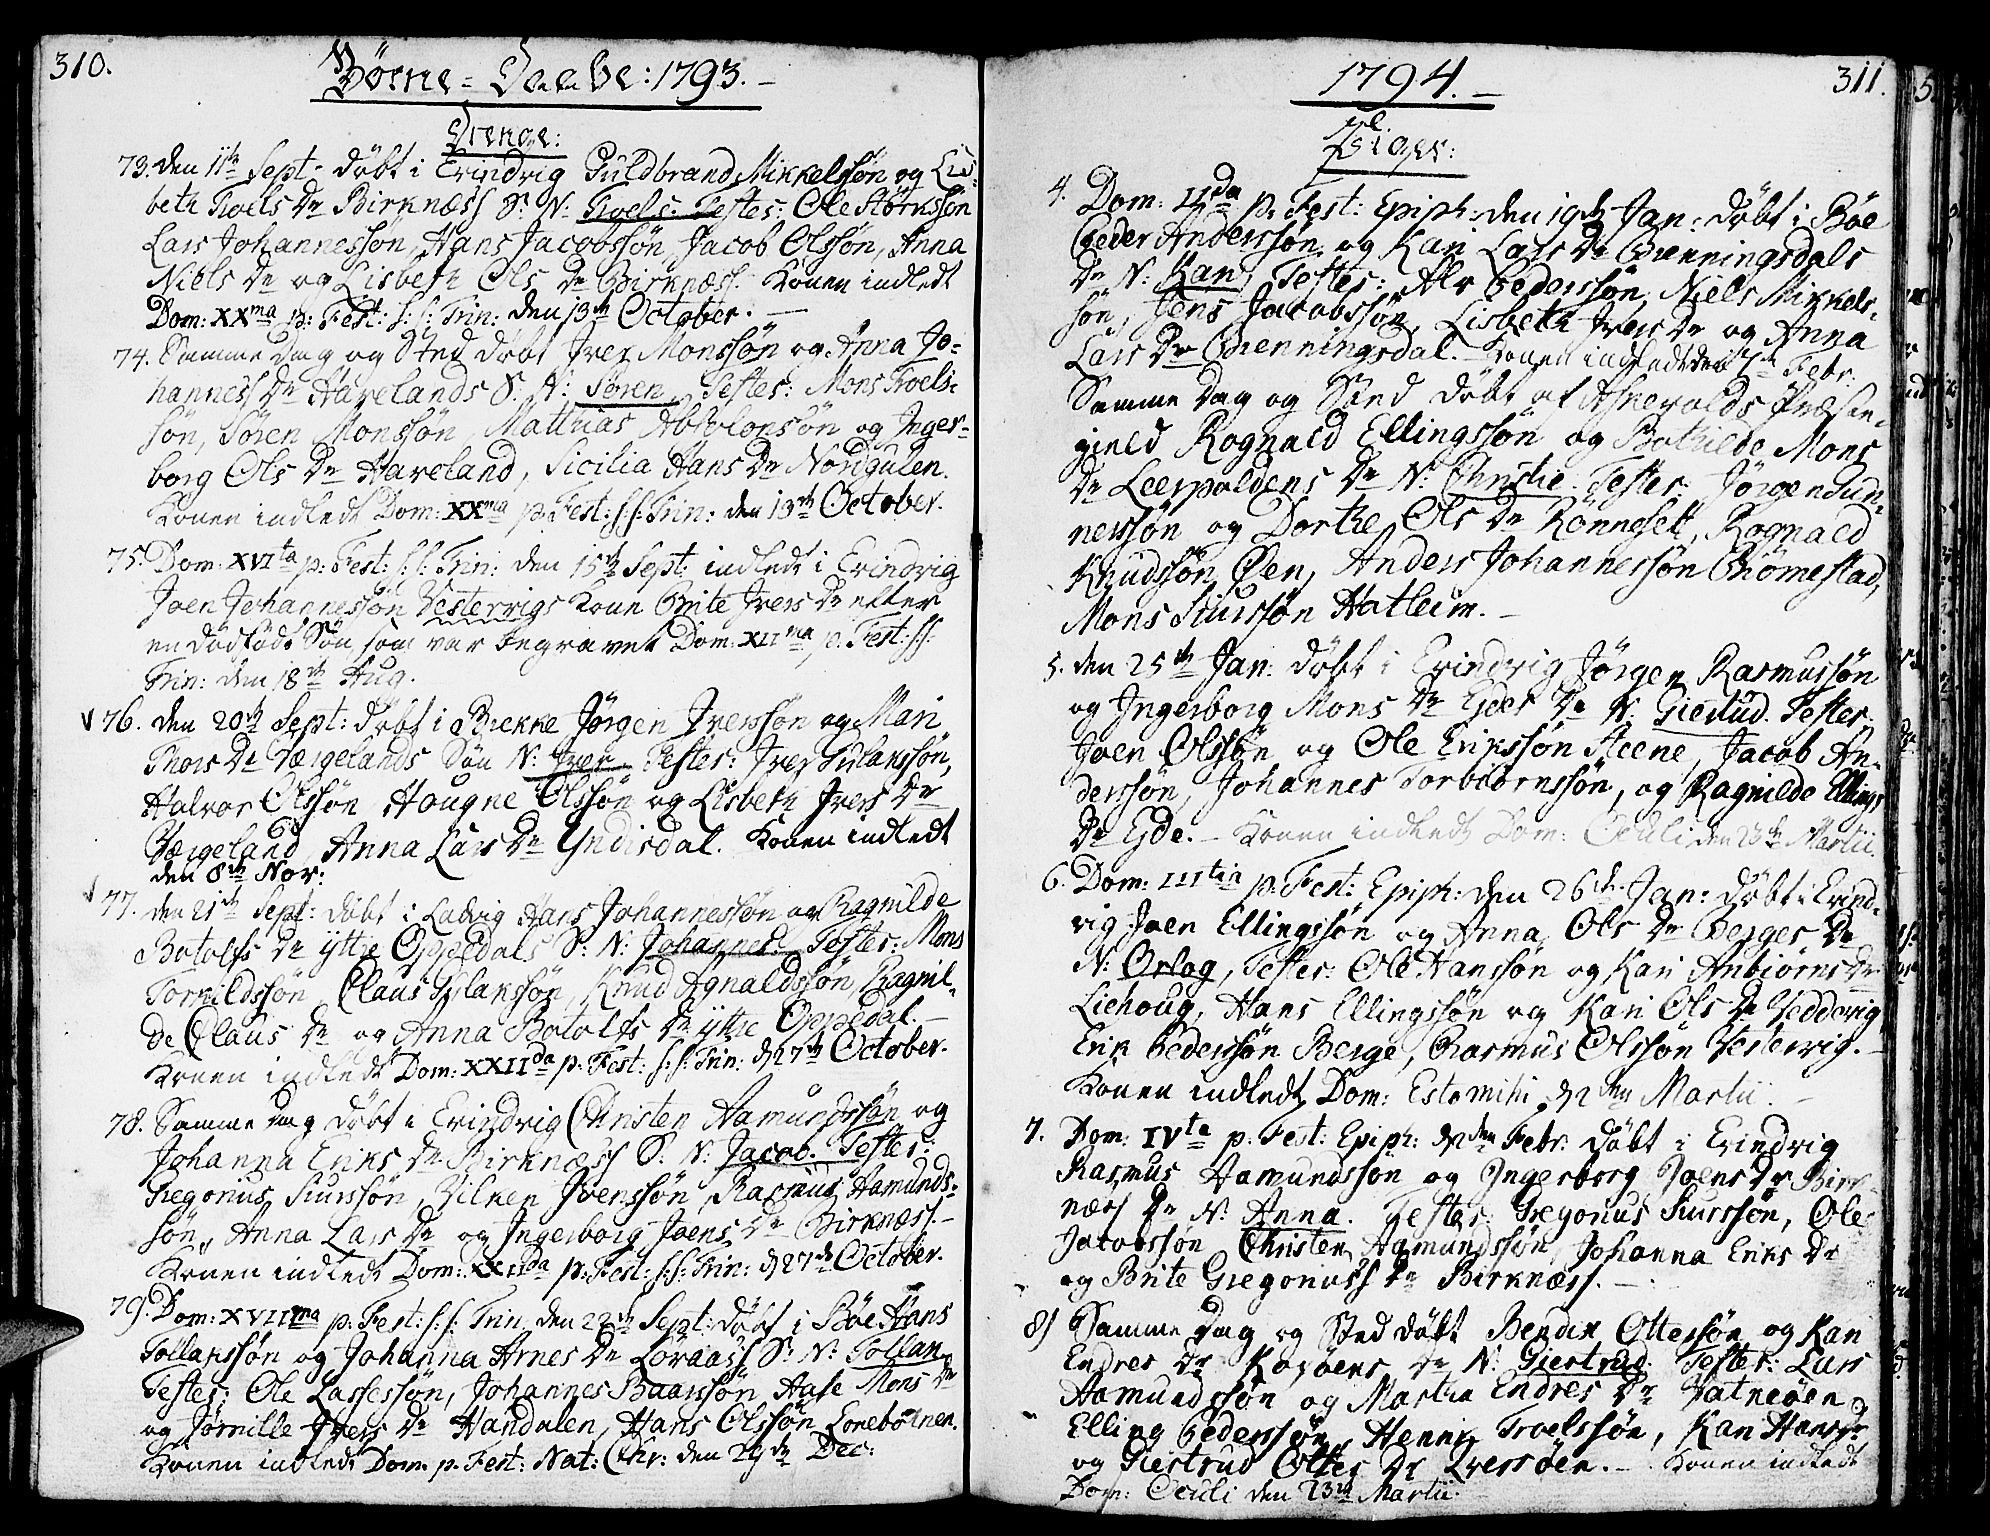 310.
Börne-Daabe: 1793.-
Drenge:
73. den 11te Sept: döbt i Erindvig Guldbrand Mikkelssön og Lis-
beth Troels Dr Birknæss S: N: Troels. Testes: Ole Störkssön
Lars Johannessön, Hans Jacobssön, Jacob Olssön, Anna
Niels Dr og Lisbeth Ols Dr Birknæss. Konen indledt
Dom: XXma p: Fest: s:s: Trin: den 13de October.-
74. Samme Dag og Sted döbt Iver Monssön og Anna Jo-
hanness Dr Hævelands S: N: Sören. Testes: Mons Troels-
sön, Sören Monssön, Matthias Absolonsön og Inger-
borg Ols Dr Haveland, Sicilia Hans Dr Nordgulen.
Konen indledt Dom: XXma p: Fest: s:s: Trin: den 13de October.
75. Dom: XVIta p: Fest: s:s: Trin: den 15de Sept: indledt i Erindvig
Joen Johannessön Vestervigs Kone Brite Ivers Dr efter
en dödfödt Sön som var begravet Dom: XIIma p: Fest: s:s:
Trin: den 18de Aug.
76. den 20de Sept: döbt i Brekke Jörgen Iverssön og Mari
Thors Dr Værgelands Sön N: Iver. Testes: Iver
Halvor Olssön, Hougne Olssön og Lisbeth Ivers Dr
Værgeland, Anna Lars Dr Yndisdal. Konen indledt
den 8de Nov:
77. den 21de Sept: döbt i Ladvig Hans Johannessön og Ragnilde
Botolfs Dr Yttre Oppedals S: N: Johannes. Testes: Mons
Torkildssön, Claus, Knud Agnaldssön, Ragnil-
de Claus Dr og Anna Botolfs Dr yttre Oppedal.-
Konen indledt Dom: XXIIda p: Fest: s:s: Trin: d 27de October.
78. Samme Dag döbt i Erindvig Christen Aamundssön og
Johanna Eriks Dr Birknæss S: N: Jacob. Testes:
Gregorius Siurssön, Joenssön, Rasmus Aamunds-
sön, Anna Lars Dr og Ingerborg Joens Dr Birknæss.-
Konen indledt Dom: XXIIda p: Fest: s:s: Trin: d 27de October.
79. Dom: XVIIma p: Fest: s:s: Trin, den 22de Sept: döbt i Böe Hans
Tollanssön og Johanna Arnes Dr Lovaass S: N: Tollan.
Testes: Ole Lassessön, Johannes Baarssön, Aase Mons Dr
og Jornille Ivers Dr Handalen, Hans Olssön Enebotnen.
Konen indledt Dom. p. Fest: Nat: Chr: den 29de Dec:
1794.-
311.
Piger:
4. Dom: IIda p. Fest: Epiph: den 19de Jan: döbt i Böe
Peder Anderssön og Kari Lars Dr Brenningsdals
Dr N: Kari, Testes: Ale Pederssön, Niels Mikkels-
sön, Jens Jacobssön, Lisbeth Ivers Dr og Anna
Lars Dr Brenningsdal.- Konen indledt den Febr:
Samme Dag og Sted döbt at Askevolds Præste-
gield Rognald Ellingssön og Bothilde Mons
Dr Leerpoldens Dr N: Christie. Testes: Jörgen Gun-
nerssön og Dorthe Ols Dr Rönneset, Rognald
Knudssön Öen, Anders Johannessön Grömestad,
Mons Siurssön Hatleim.-
5. den 25de Jan: döbt i Erindvig Jörgen Rasmussön
og Ingerborg Mons Dr Eides Dr N: Giertrud. Testes.
Joen Olssön og Ole Erikssön Steene, Jacob An-
derssön, Johannes Torbiörnssön, og Ragnilde Ellings
Dr Eyde.- Konen indledt Dom: Oculi den 23de Martii.
6. Dom: IIItia p. Fest: Epiph: den 26de Jan: döbt i Erind-
vig Joen Ellingssön og Anna Ols Dr Berges Dr
N: Orlog, Testes: Ole Hanssön og Kari Anbiörns Dr
Liehoug, Hans Ellingssön og Kari Ols Dr Yeddevig,
Erik Pederssön Berge, Rasmus Olssön Vestervig.-
Konen indledt Dom: Estomihi d 2den Martii.-
7. Dom: IVta p. Fest: Epiph: d 2den Febr: döbt i Erindvig
Rasmus Aamundssön og Ingerborg Joens Dr Birk-
næss Dr N: Anna. Testes: Gregorius Siurssön, Ole
Jacobssön Christen Aamundssön, Johanna Eriks Dr
og Brite Gregoriuss Dr Birknæss.-
8) Samme Dag og Sted döbt Bendix Ottersön og Kari
Endres Dr Dr N: Giertrud. Testes: Lars
Aamundssön og Martha Endres Dr Vatneöen,
Elling Pederssön, Henrik Troelssön, Kari Hans Dr
og Giertrud Ottes Dr.- Konen indledt
Dom: Oculi den 23de Martii.